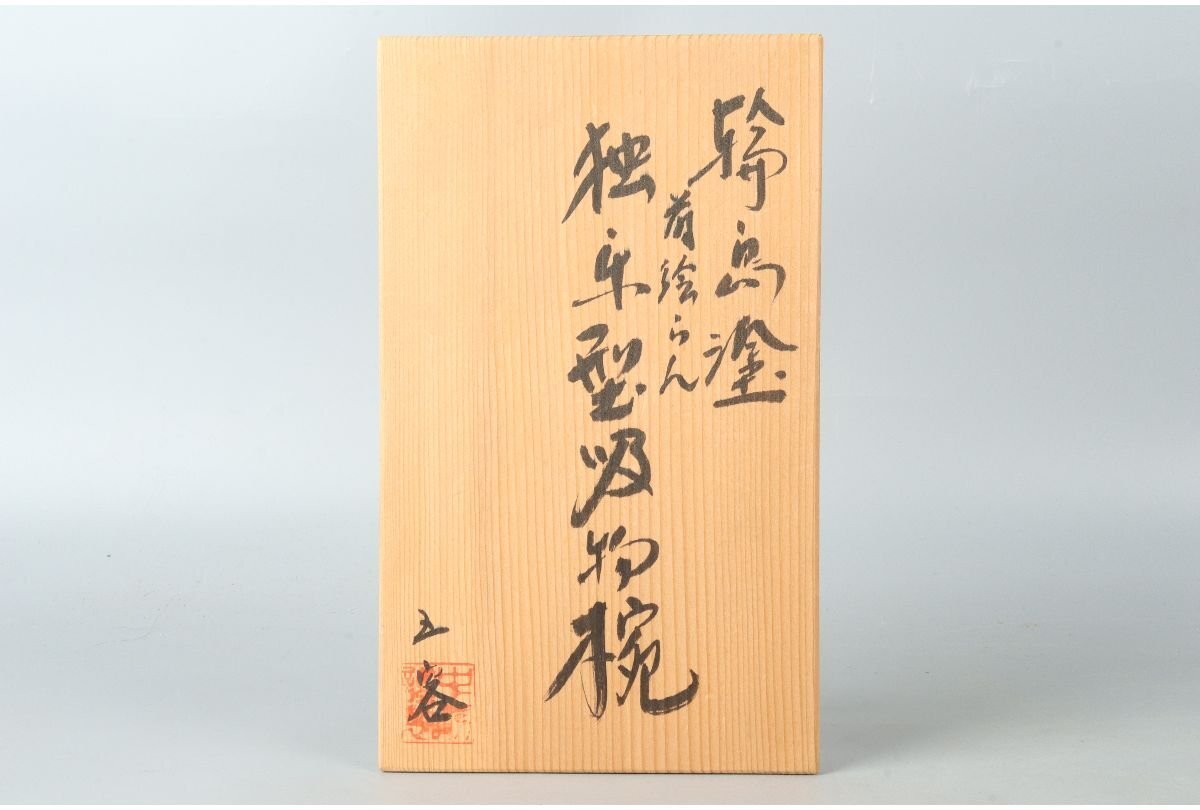 輪島塗
蒔絵らん
独楽型吸物椀
五客